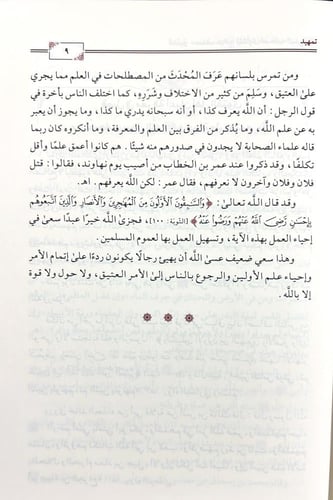 تمهيد
٩
ومن تمرس بلسانهم عَرَفَ المُحْدَثَ من المصطلحات في العلم مما يجري
على العتيق، وسَلِمَ من كثير من الاختلاف وشَرَرِه، كما اختلف الناس بأخرة في
قول الرجل: أن الله يعرف كذا، أو أنه سبحانه يدري ما كذا، وما يجوز أن يعبر
به عن علم الله، وما يُذكر من الفرق بين العلم والمعرفة، وما أنكروه كان ربما
قاله علماء الصحابة لا يجدون في صدورهم منه شيئًا. هم كانوا أعمق علمًا وأقل
تكلفًا، وقد ذكروا عند عمر بن الخطاب من أصيب يوم نهاوند، فقالوا: قتل
فلان وفلان وآخرون لا نعرفهم، فقال عمر: لكن الله يعرفهم. اهـ.
وقد قال الله تعالى: ﴿وَالسَّٰبِقُونَ الْأَوَّلُونَ مِنَ الْمُهَٰجِرِينَ وَالْأَنصَارِ وَالَّذِينَ اتَّبَعُوهُم
بِإِحْسَٰنٍ رَّضِىَ اللَّهُ عَنْهُمْ وَرَضُوا عَنْهُ﴾ [التوبة: ١٠٠]، فجزىٰ اللهُ خيرًا عبدًا سعىٰ في
إحياء العمل بهذه الآية، وتسهيل العمل بها لعموم المسلمين.
وهذا سعي ضعيف عسىٰ الله أن يهيئ رجالًا يكونون ردءًا علىٰ إتمام الأمر
وإحياء علم الأولين والرجوع بالناس إلىٰ الأمر العتيق، ولا حول ولا قوة
إلا بالله.